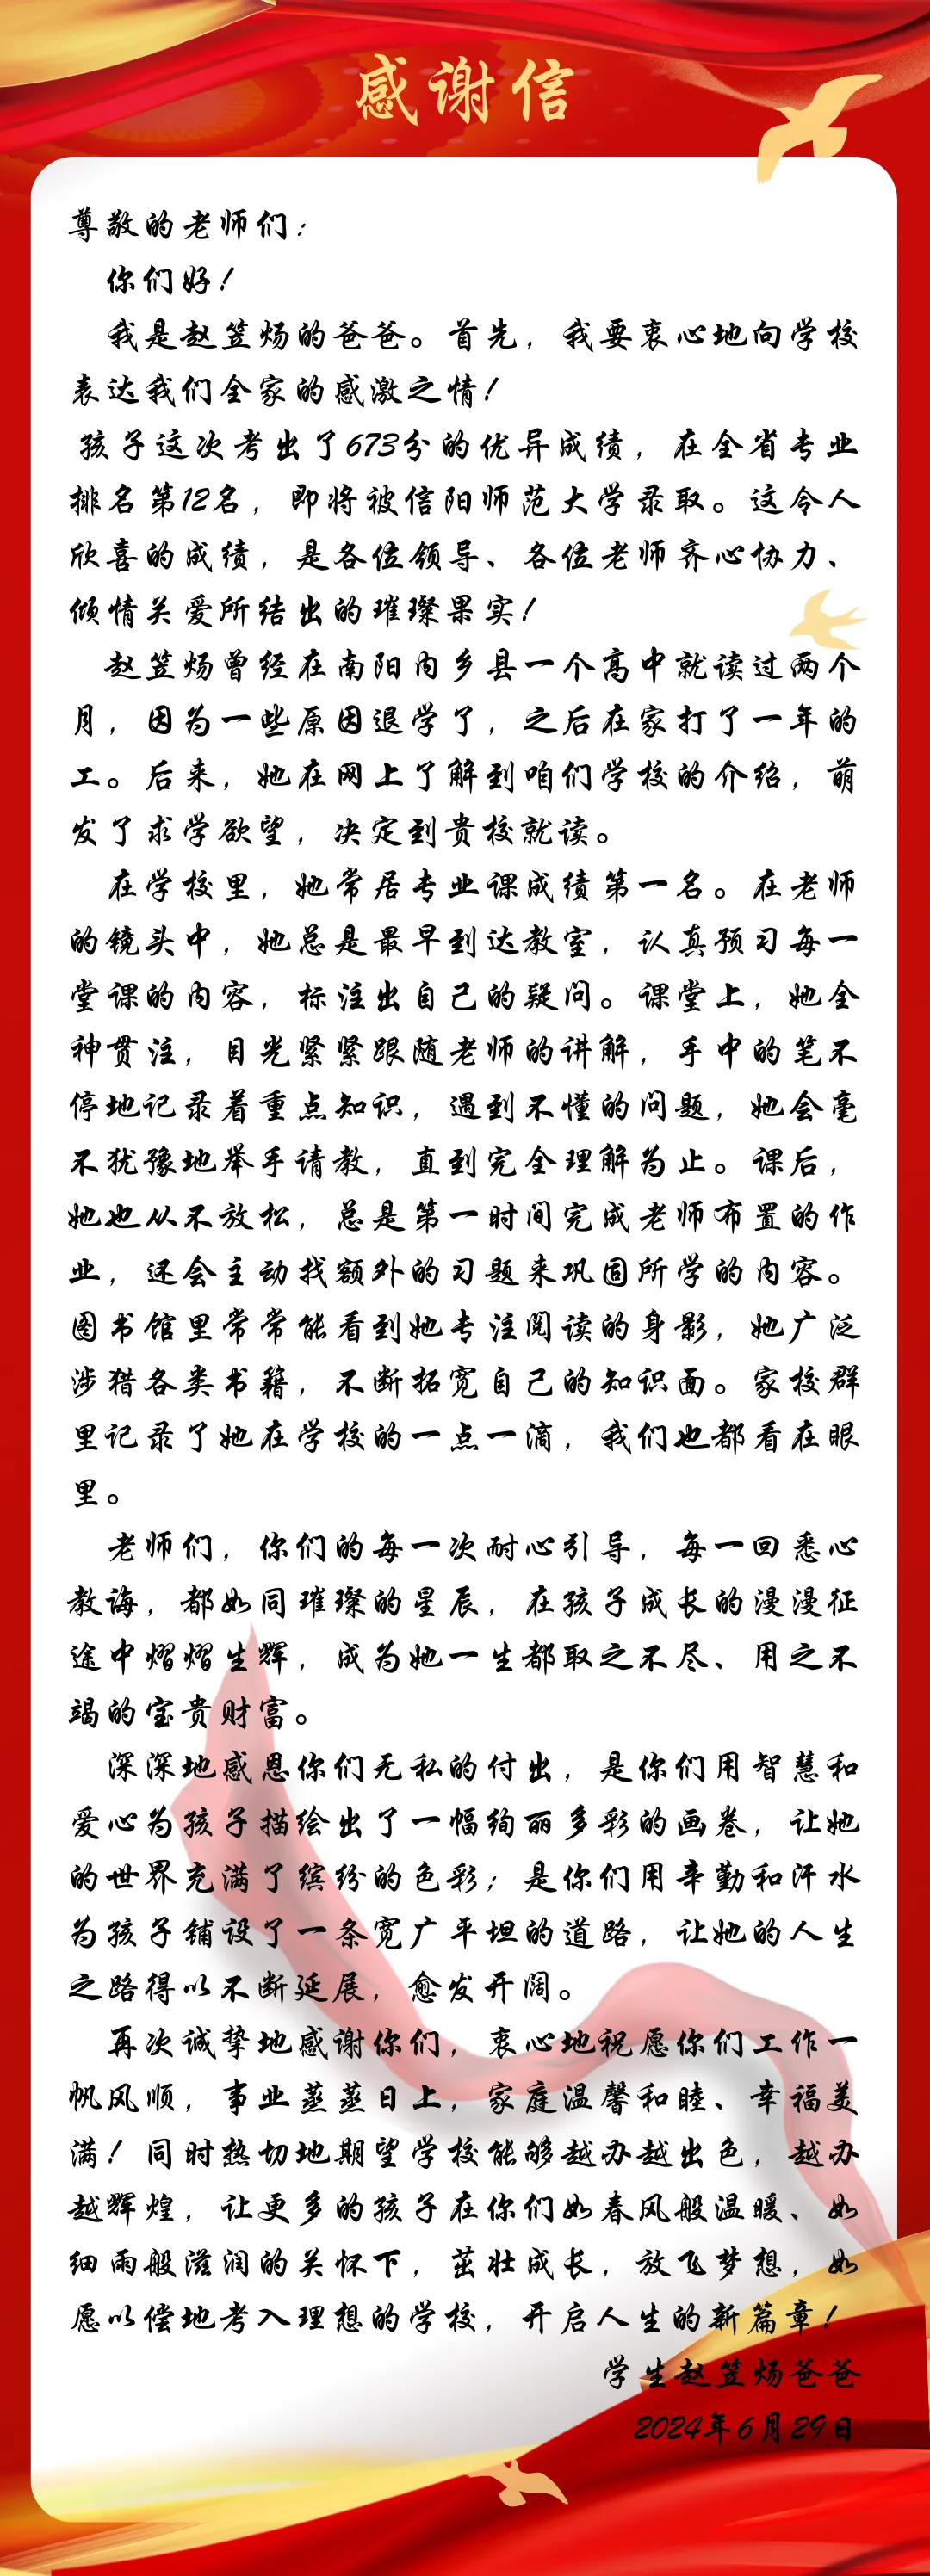 感谢信
尊敬的老师们：
你们好！
我是赵笠炀的爸爸。首先，我要衷心地向学校
表达我们全家的感激之情！
孩子这次考出了673分的优异成绩，在全省专业
排名第12名，即将被信阳师范大学录取。这令人
欣喜的成绩，是各位领导、各位老师齐心协力、
倾情关爱所结出的璀璨果实！
赵笠炀曾经在南阳内乡县一个高中就读过两个
月，因为一些原因退学了，之后在家打了一年的
工。后来，她在网上了解到咱们学校的介绍，萌
发了求学欲望，决定到贵校就读。
在学校里，她常居专业课成绩第一名。在老师
的镜头中，她总是最早到达教室，认真预习每一
堂课的内容，标注出自己的疑问。课堂上，她全
神贯注，目光紧紧跟随老师的讲解，手中的笔不
停地记录着重点知识，遇到不懂的问题，她会毫
不犹豫地举手请教，直到完全理解为止。课后，
她也从不放松，总是第一时间完成老师布置的作
业，还会主动找额外的习题来巩固所学的内容。
图书馆里常常能看到她专注阅读的身影，她广泛
涉猎各类书籍，不断拓宽自己的知识面。家校群
里记录了她在学校的一点一滴，我们也都看在眼
里。
老师们，你们的每一次耐心引导，每一回悉心
教诲，都如同璀璨的星辰，在孩子成长的漫漫征
途中熠熠生辉，成为她一生都取之不尽、用之不
竭的宝贵财富。
深深地感恩你们无私的付出，是你们用智慧和
爱心为孩子描绘出了一幅绚丽多彩的画卷，让她
的世界充满了缤纷的色彩；是你们用辛勤和汗水
为孩子铺设了一条宽广平坦的道路，让她的人生
之路得以不断延展，愈发开阔。
再次诚挚地感谢你们，衷心地祝愿你们工作一
帆风顺，事业蒸蒸日上，家庭温馨和睦、幸福美
满！同时热切地期望学校能够越办越出色，越办
越辉煌，让更多的孩子在你们如春风般温暖、如
细雨般滋润的关怀下，茁壮成长，放飞梦想，如
愿以偿地考入理想的学校，开启人生的新篇章！
学生赵笠炀爸爸
2024年6月29日